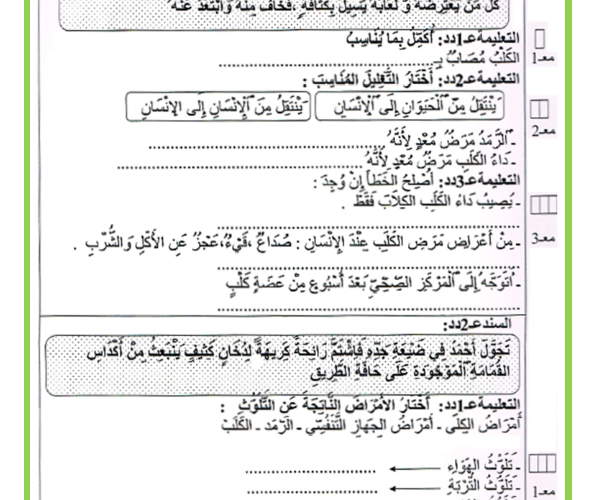 كُلَّ مَنْ يَعْتَرِضُهُ وَ لُعَابُهُ يَسِيلُ بِكَثَافَةٍ ،فَخَافَ مِنْهُ وَابْتَعَدَ عَنْهُ
التعليمة عـ1دد: أُكْمِلُ بِمَا يُنَاسِبُ
الكَلْبُ مُصَابٌ بِـ ........................................
معـ1
التعليمة عـ2دد: أَخْتَارُ التَّعْلِيلَ المُنَاسِبَ :
يَنْتَقِلُ مِنَ الْحَيَوَانِ إِلَى الْإِنْسَانِ
يَنْتَقِلُ مِنَ الْإِنْسَانِ إِلَى الإِنْسَانِ
معـ2
ـ الرَّمَدُ مَرَضٌ مُعْدٍ لِأَنَّهُ ........................................
ـ دَاءُ الكَلَبِ مَرَضٌ مُعْدٍ لِأَنَّهُ ........................................
التعليمة عـ3دد: أُصْلِحُ الخَطَأَ إِنْ وُجِدَ :
ـ يُصِيبُ دَاءُ الكَلَبِ الكِلَابَ فَقَطْ .
........................................
معـ3
ـ مِنْ أَعْرَاضِ مَرَضِ الكَلَبِ عِنْدَ الإِنْسَانِ : صُدَاعٌ ،قَيْءٌ،عَجْزٌ عَنِ الأَكْلِ وَالشُّرْبِ .
........................................
ـ أَتَوَجَّهُ إِلَى الْمَرْكَزِ الصِّحِّيِّ بَعْدَ أُسْبُوعٍ مِنْ عَضَّةِ كَلْبٍ
........................................
السند عـ2دد:
تَجَوَّلَ أَحْمَدُ فِي ضَيْعَةِ جَدِّهِ فَاشْتَمَّ رَائِحَةً كَرِيهَةً لِدُخَانٍ كَثِيفٍ يَنْبَعِثُ مِنْ أَكْدَاسِ
القُمَامَةِ الْمَوْجُودَةِ عَلَى حَافَّةِ الطَّرِيقِ
التعليمة عـ1دد: أَخْتَارُ الأَمْرَاضَ النَّاتِجَةَ عَنِ التَّلَوُّثِ :
أَمْرَاضُ الكِلَى ـ أَمْرَاضُ الجِهَازِ التَّنَفُّسِي ـ الرَّمَد ـ الكَلَبُ
ـ تَلَوُّثُ الهَوَاءِ ← ........................................
ـ تَلَوُّثُ التُّرْبَةِ ← ........................................
معـ1